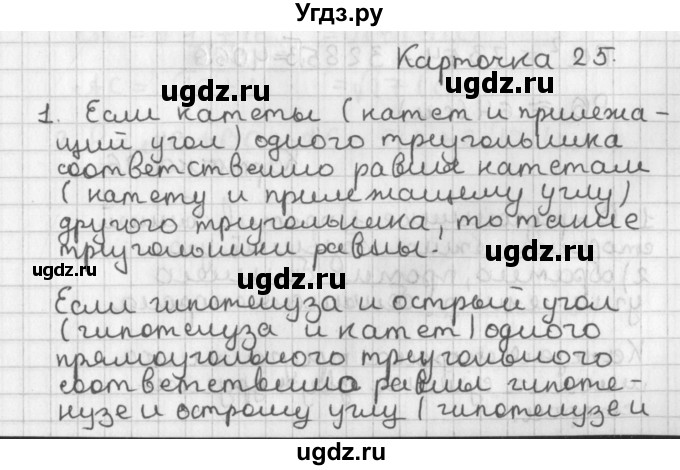 Угдз.ру
Карточка 25.
ugdz.ru
ugdz.ru
1. Если катеты (катет и прилежа-
щий угол) одного треугольника
соответственно равны катетам
(катету и прилежащему углу)
другого треугольника, то такие
треугольники равны.
ugdz.ru
ugdz.ru
ugdz.ru
Если гипотенуза и острый угол
(гипотенуза и катет) одного
прямоугольного треугольного
соответственно равны гипоте-
нузе и острому углу (гипотенузе и
ugdz.ru
ugdz.ru
ugdz.ru